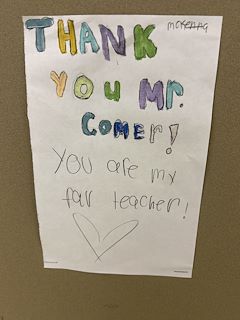 McKenna
THANK
you Mr.
COMer!
you are my
fav teacher!